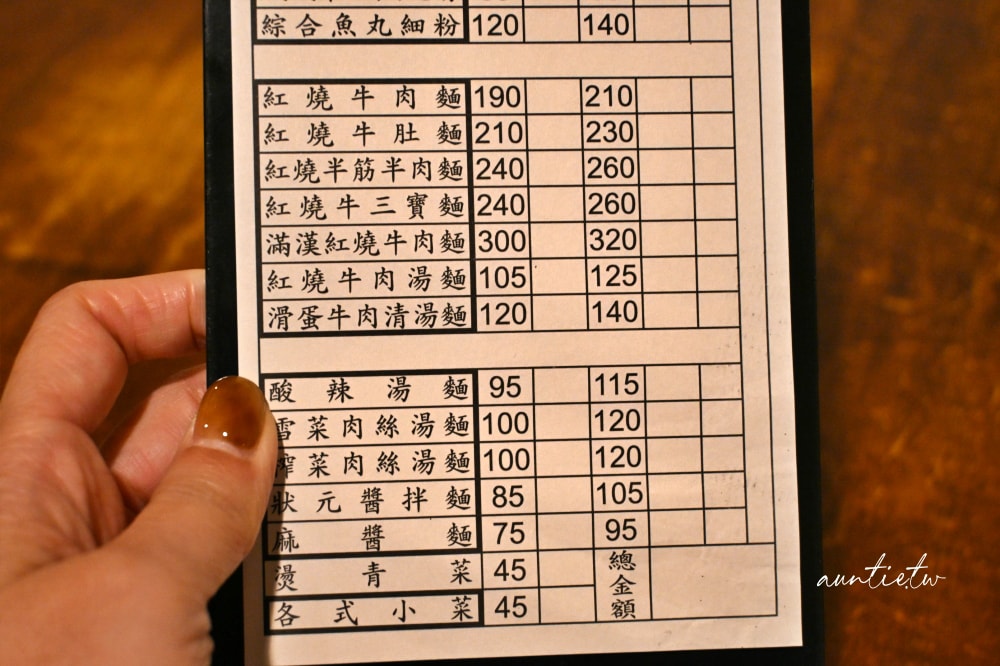 綜合魚丸細粉 120 140
紅燒牛肉麵 190 210
紅燒牛肚麵 210 230
紅燒半筋半肉麵 240 260
紅燒牛三寶麵 240 260
滿漢紅燒牛肉麵 300 320
紅燒牛肉湯麵 105 125
滑蛋牛肉清湯麵 120 140
酸辣湯麵 95 115
雪菜肉絲湯麵 100 120
榨菜肉絲湯麵 100 120
狀元醬拌麵 85 105
麻醬麵 75 95
燙青菜 45
各式小菜 45
總金額
auntie.tw